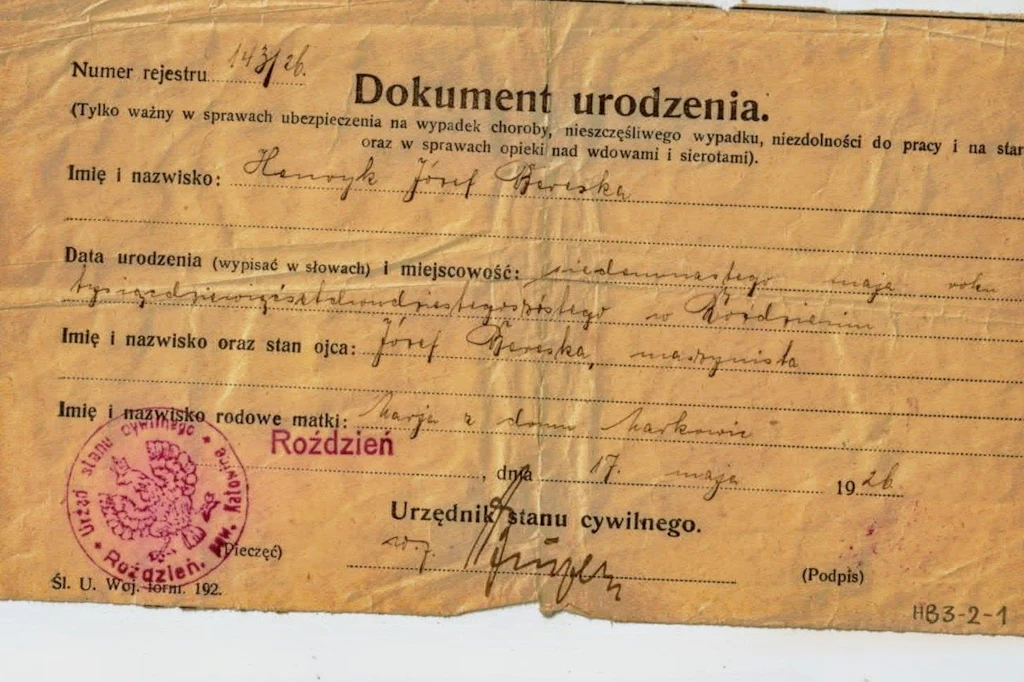 Numer rejestru 143/26.
Dokument urodzenia.
(Tylko ważny w sprawach ubezpieczenia na wypadek choroby, nieszczęśliwego wypadku, niezdolności do pracy i na star
oraz w sprawach opieki nad wdowami i sierotami).
Imię i nazwisko: Henryk Józef Bereska
Data urodzenia (wypisać w słowach) i miejscowość: siedemnastego maja roku
tysiącdziewięćsetdwudziestegoszóstego w Roździeniu
Imię i nazwisko oraz stan ojca: Józef Bereska, maszynista
Imię i nazwisko rodowe matki: Marja z domu Markowic
Roździeń, dnia 17. maja 1926.
Urzędnik stanu cywilnego.
w. z.
(Pieczęć)
(Podpis)
Urząd stanu cywilnego * Roździen, pow. Katowice *
Śl. U. Woj. form. 192.
HB3-2-1